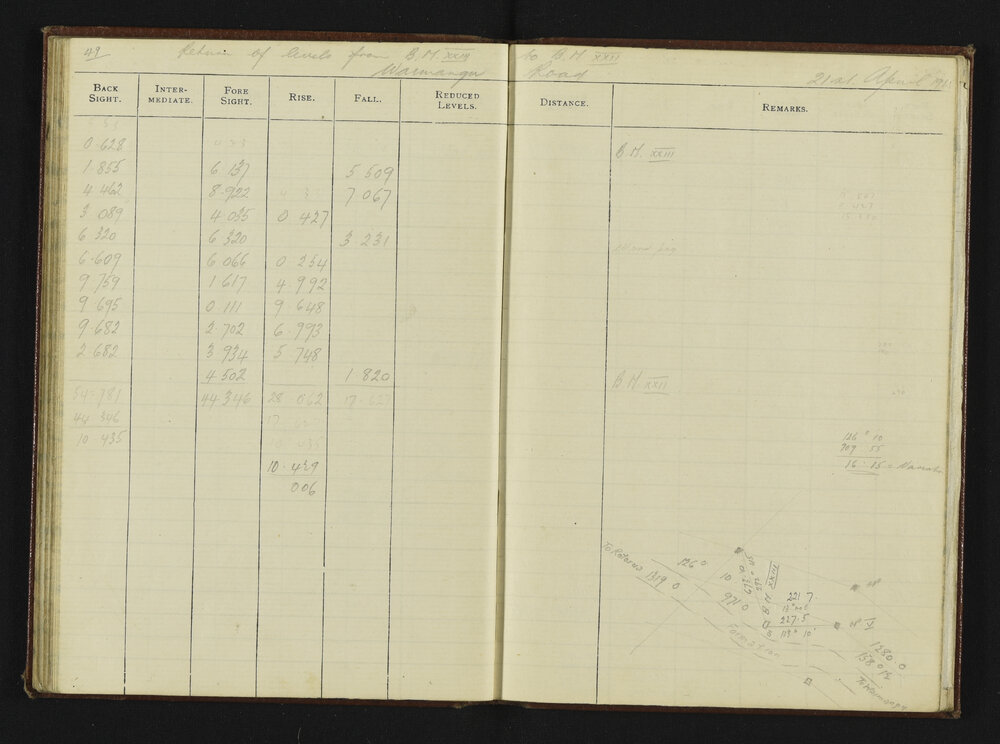 49 Return of levels from B.M. XXIII to B.M. XXII
Waimangu Road 21st April
BACK SIGHT. INTER-MEDIATE. FORE SIGHT. RISE. FALL. REDUCED LEVELS. DISTANCE. REMARKS.
0.628 B.M. XXIII
1.855 6.137 5.509
4.462 8.922 7.067
3.089 4.035 0.427
6.320 6.320 3.231
6.609 6.066 0.254
9.759 1.617 4.992
9.695 0.111 9.648
9.682 2.702 6.993
2.682 3.934 5.748
4.502 1.820 B.M. XXII
54.781 44.346 28.062 17.627
44.346 17.627
10.435 10.435
10.429
006
126° 10
16.15 =
To Rotorua 1319 0
126 0
10
971 0
Formation
B.M. XXII
221 7
227.5
113° 10'
OP
OP V
1280 0